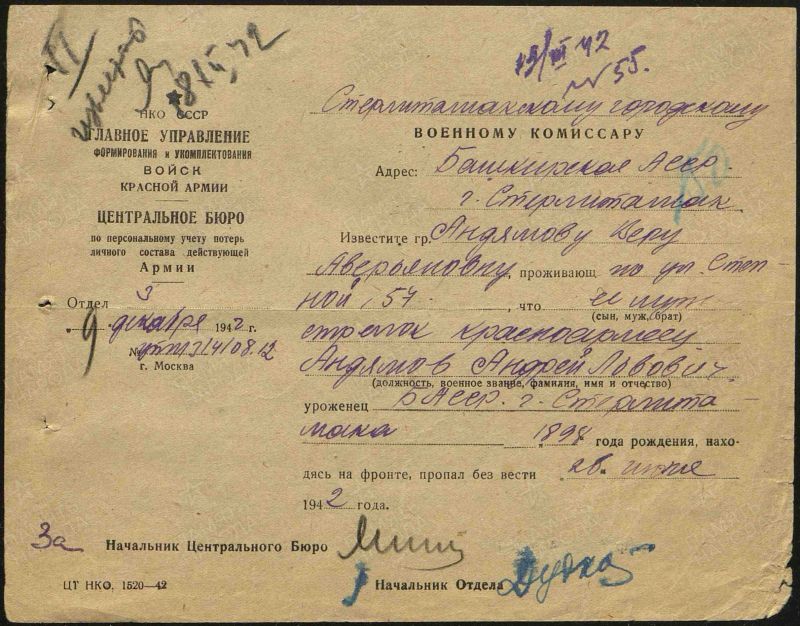 извещено
8/XII,42
19/XII 42
№ 55.
НКО СССР
ГЛАВНОЕ УПРАВЛЕНИЕ
ФОРМИРОВАНИЯ и УКОМПЛЕКТОВАНИЯ
ВОЙСК
КРАСНОЙ АРМИИ
ЦЕНТРАЛЬНОЕ БЮРО
по персональному учету потерь
личного состава действующей
Армии
Отдел 3
„9" декабря 1942 г.
№
г. Москва
Стерлитамакскому городскому
ВОЕННОМУ КОМИССАРУ
Адрес: Башкирская Асср.
г. Стерлитамак
Известите гр. Андямову Веру
Аверьяновну, проживающ по ул. Степ-
ной, 57, что ее муж
(сын, муж, брат)
стрелок красноармеец
Андямов Андрей Львович
(должность, военное звание, фамилия, имя и отчество)
уроженец БАсср. г. Стерлита-
мака 1898 года рождения, нахо-
дясь на фронте, пропал без вести 26. июня
1942 года.
За Начальник Центрального Бюро
Начальник Отдела Дудка
ЦТ НКО. 1520—42